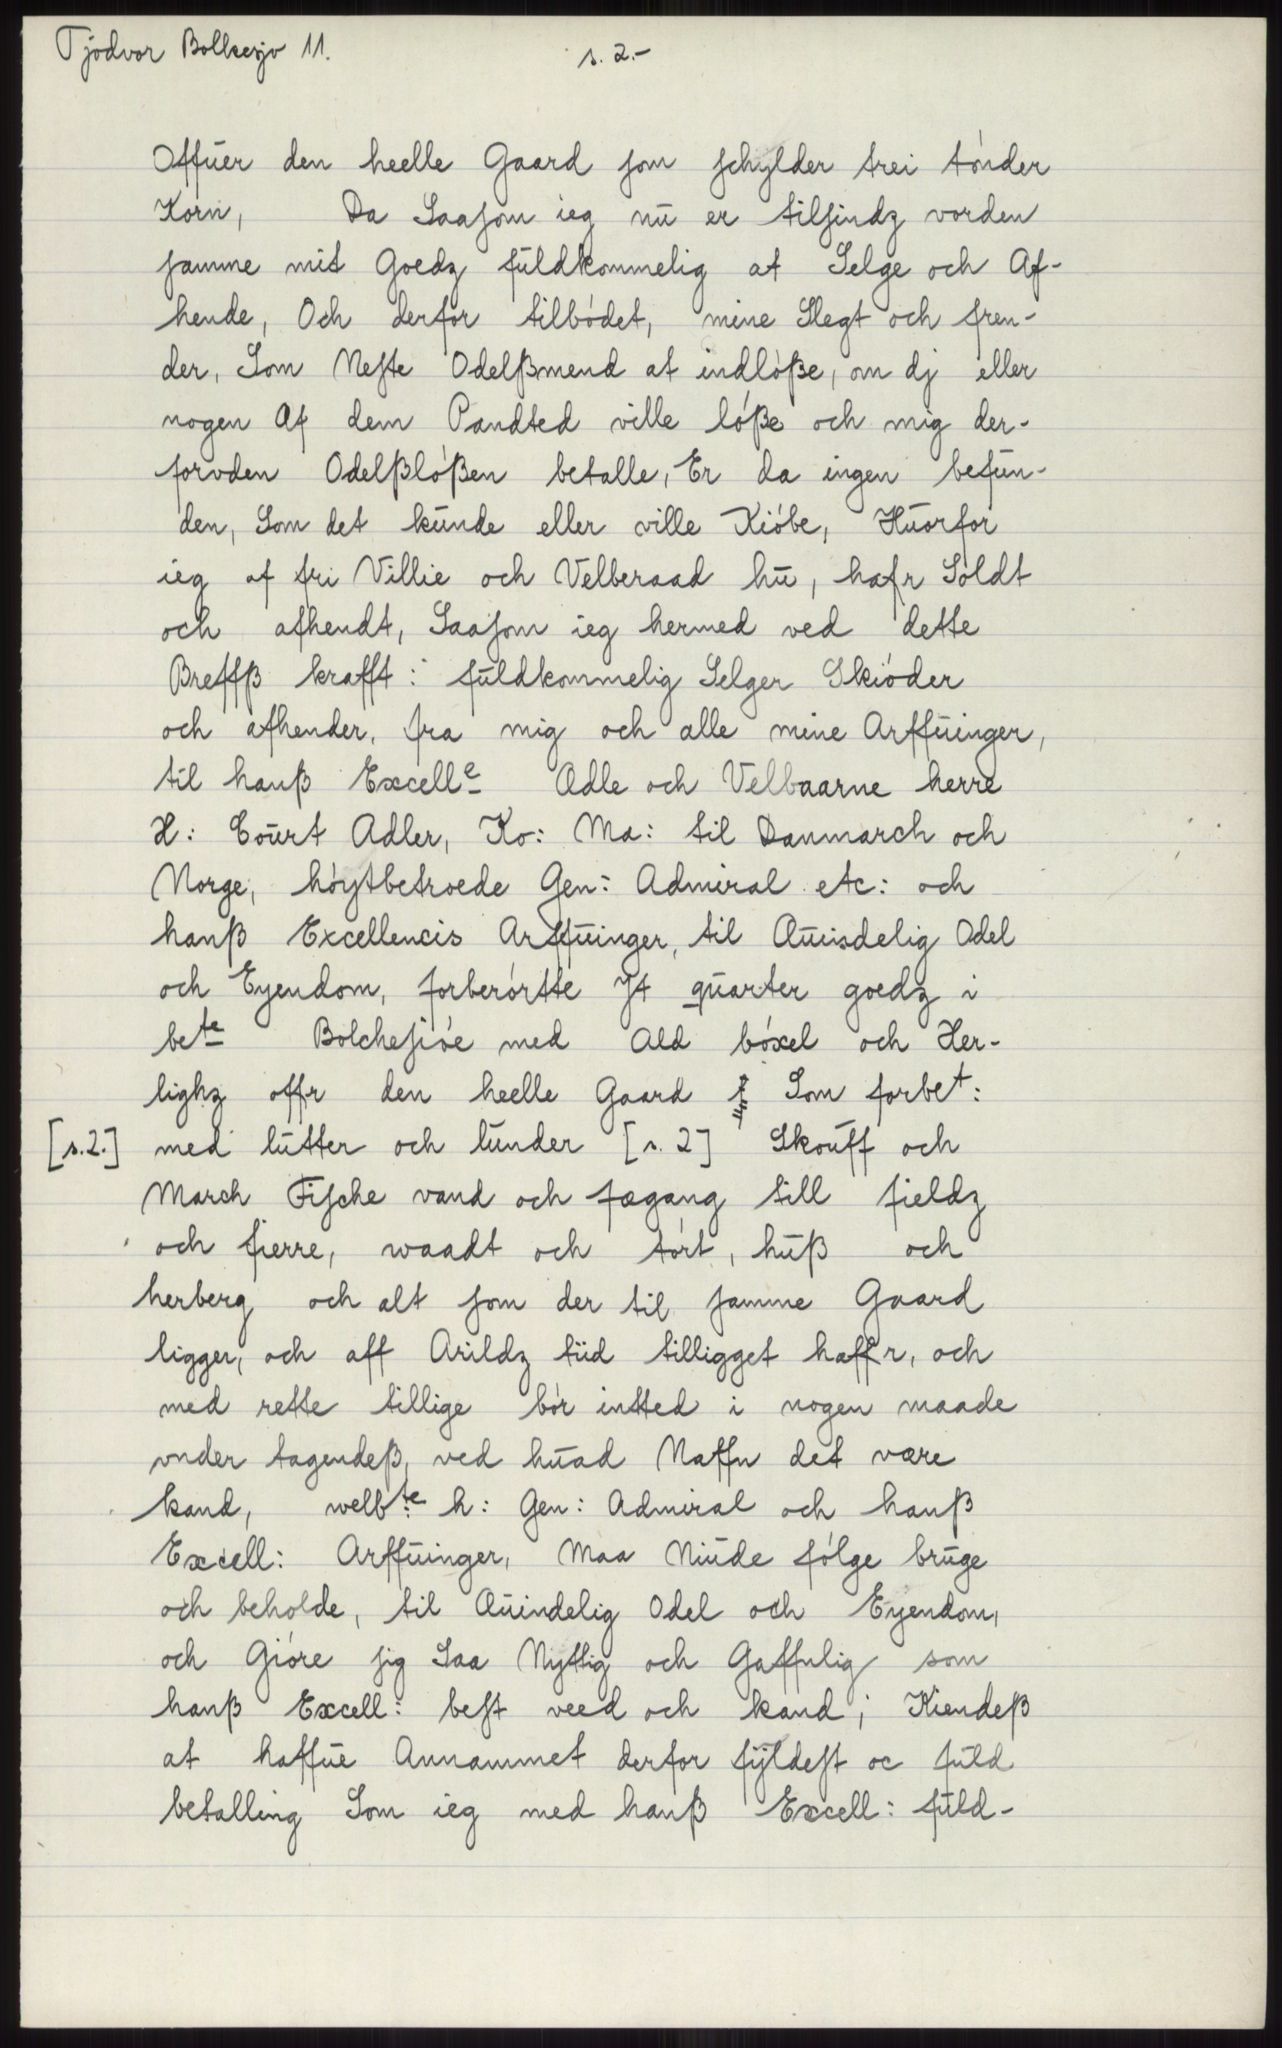 Tjodvor Bolkesjo 11. s. 2.-
Offuer den heelle Gaard som schylder trei tónder
Korn, Da Saasom ieg nu er tilsindz vorden
samme mit Goedz fuldkommelig at Selge och Af-
hende, Och derfor tilbódet, mine Slegt och fren-
der, Som Neste Odelßmend at indlóße, om dj eller
nogen Af dem Pandted ville lóße och mig der-
forvden Odelßlóßen betalle, Er da ingen befun-
den, Som det kunde eller ville Kióbe, Huorfor
ieg af fri Villie och Velberaad hu, hafr Sóldt
och afhendt, Saasom ieg hermed ved dette
Breffß krafft: fuldkommelig Selger Skióder
och afhender, fra mig och alle mine Arffuinger,
til hanß Excelle Adle och Velbaarne herre
H: Court Adler, Ko: Ma: til Danmarch och
Norge, hóytbetroede Gen: Admiral etc: och
hanß Excellencis Arffuinger, til Æuisdelig Odel
och Eyendom, forberórtte It quarter goedz i
bete Bolchesióe med Ald bóxel och Her-
lighz offr den heelle Gaard Som forbet:
[s.2.] med lutter och lunder [s. 2] Skouff och
March Fische vand och fægang till fieldz
och fierre, waadt och tórt, huß och
herberg och alt som der til samme Gaard
ligger, och aff Arildz tiid tilligget haffr, och
med rette tillige bór intted i nogen maade
vnder tagendeß, ved huad Naffn det være
kand, welbte h: Gen: Admiral och hanß
Excell: Arffuinger, Maa Niude fólge bruge
och beholde, til Æuindelig Odel och Eyendom,
och Gióre sig Saa Nyttig och Gaffnlig som
hanß Excell: best veed och kand; Kiendeß
at haffue Annammet derfor fyldest oc fuld
betalling Som ieg med hanß Excell: fuld-